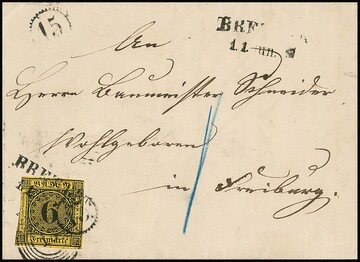 15
BRE
11
An
Herrn Baumeister Schneider
Wohlgeboren
in Freiburg.
BRE
BADEN
6
Freimarke